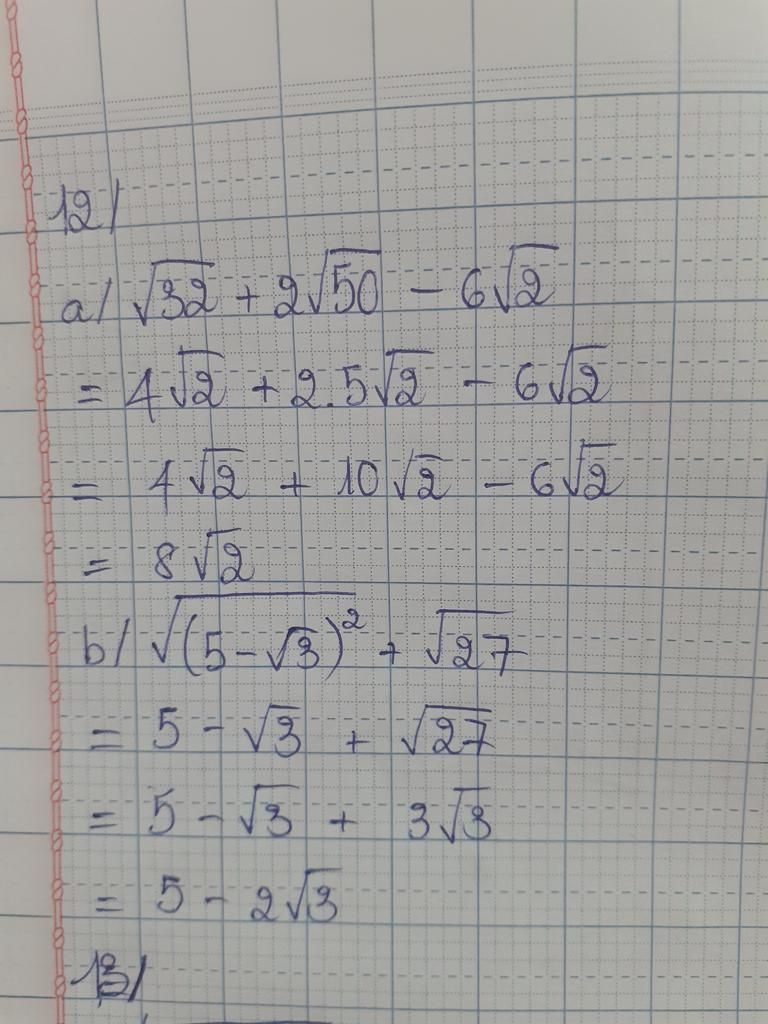 12/
a/ √32 + 2√50 - 6√2
= 4√2 + 2.5√2 - 6√2
= 4√2 + 10√2 - 6√2
= 8√2
b/ √(5-√3)² + √27
= 5 - √3 + √27
= 5 - √3 + 3√3
= 5 - 2√3
13/